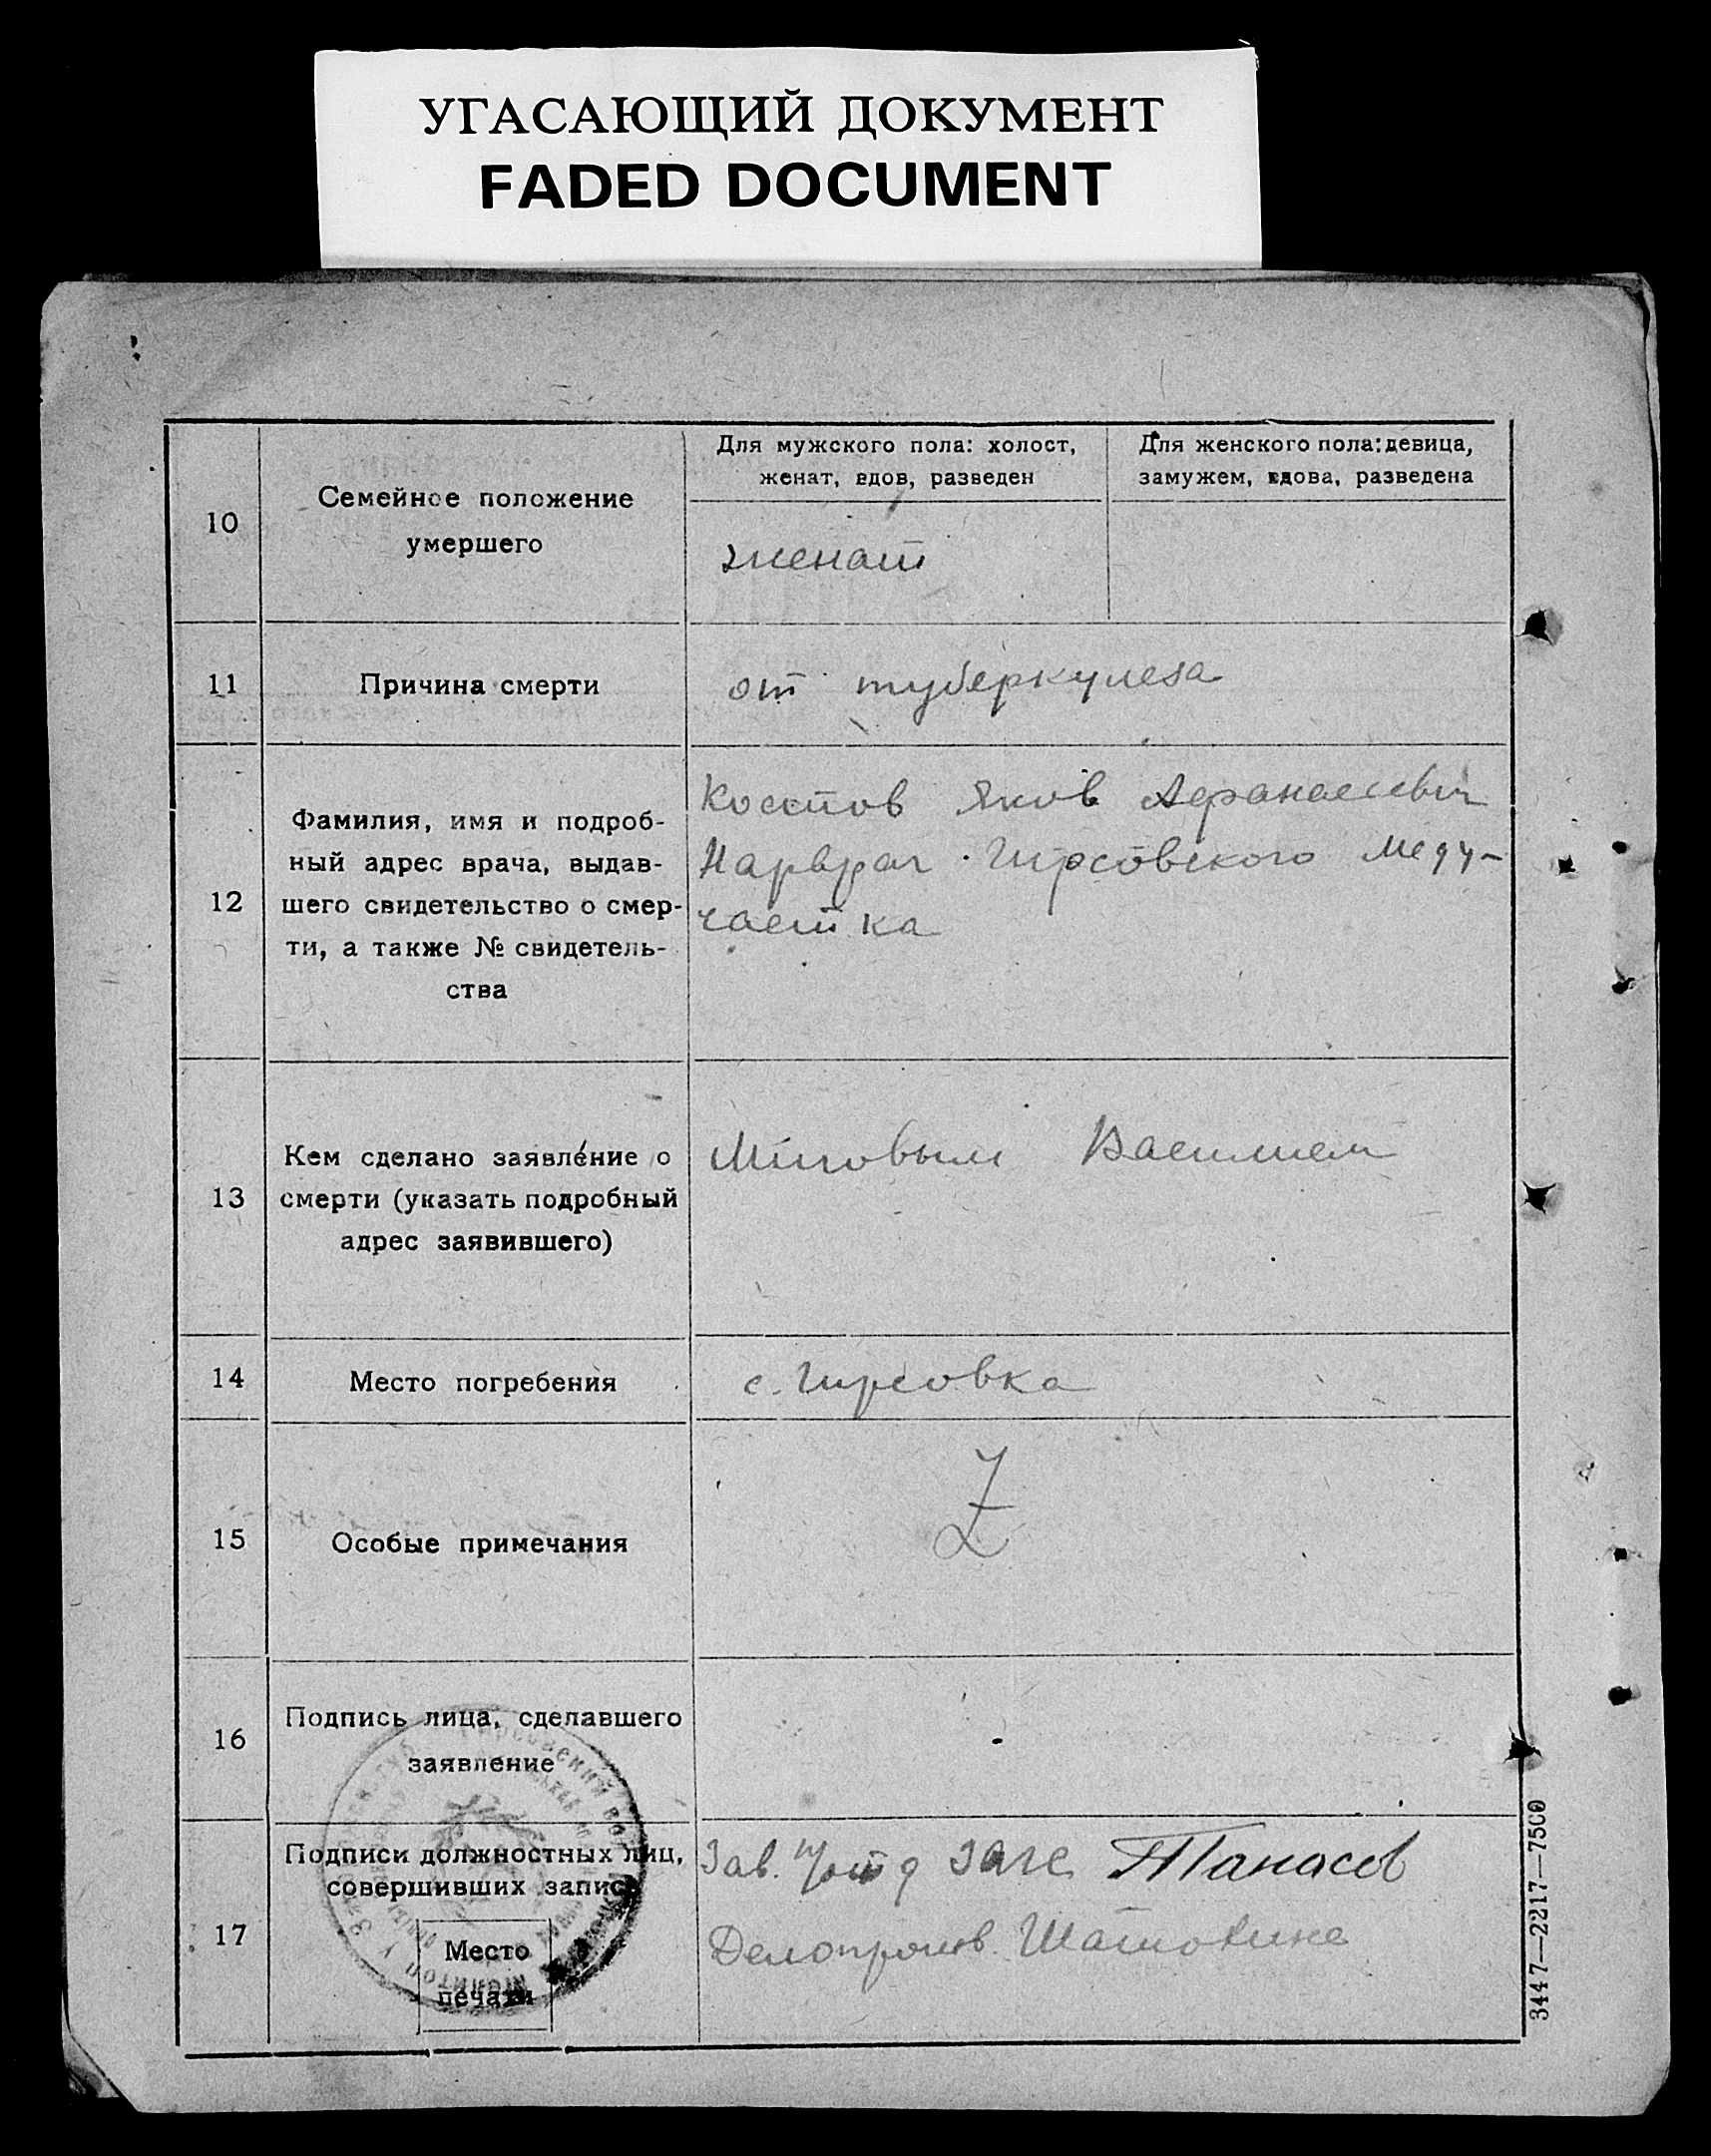 УГАСАЮЩИЙ ДОКУМЕНТ
FADED DOCUMENT
10
Семейное положение
умершего
Для мужского пола: холост,
женат, вдов, разведен
Для женского пола: девица,
замужем, вдова, разведена
женат
11
Причина смерти
от туберкулеза
12
Фамилия, имя и подроб-
ный адрес врача, выдав-
шего свидетельство о смер-
ти, а также № свидетель-
ства
Яков Афанасьевич
Гирсовского Меду-
частка
13
Кем сделано заявление о
смерти (указать подробный
адрес заявившего)
Василием
14
Место погребения
с. Гирсовка
15
Особые примечания
Z
16
Подпись лица, сделавшего
заявление
17
Подписи должностных лиц,
совершивших запись
Место
печати
Зав. загс Танасов
Делопроизв.
3447—2217—7500